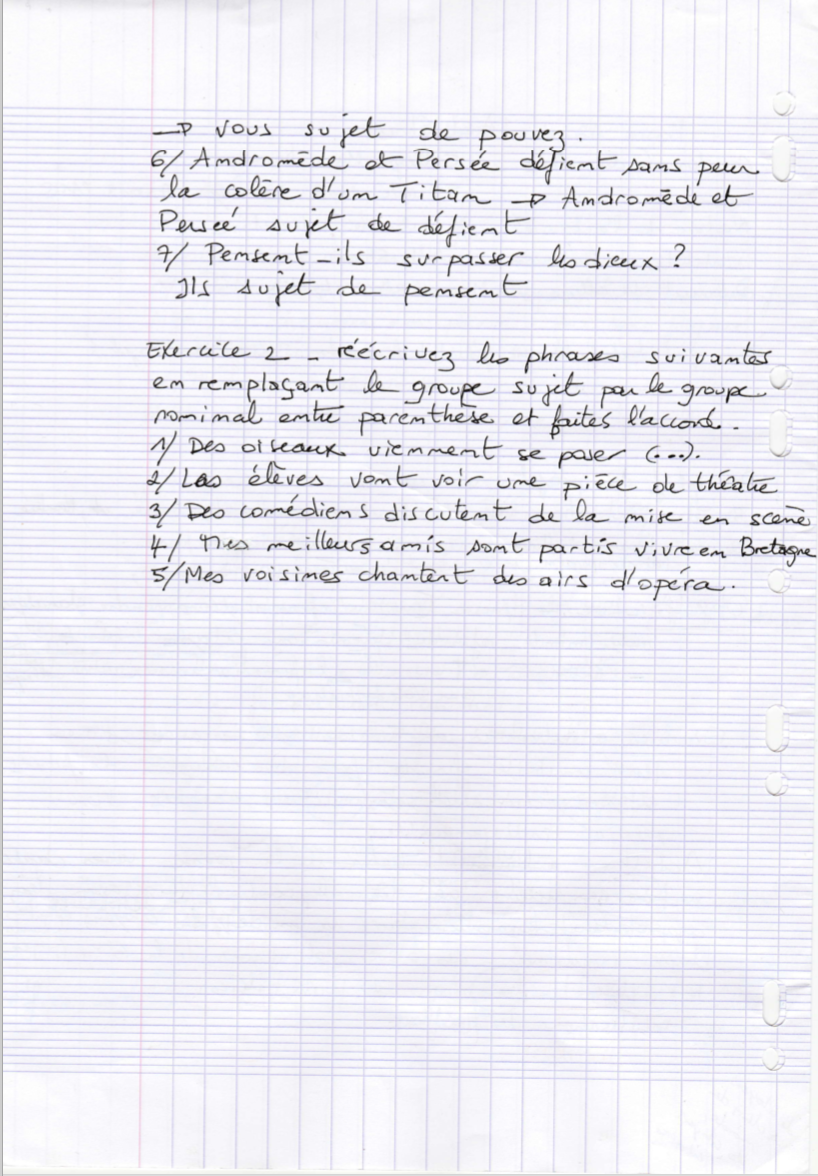 → vous sujet de pouvez.
6/ Andromède et Persée défient sans peur
la colère d'un Titan → Andromède et
Perseé sujet de défient
7/ Pensent-ils surpasser les dieux ?
Ils sujet de pensent
Exercice 2 - réécrivez les phrases suivantes
en remplaçant le groupe sujet par le groupe
nominal entre parenthèse et faites l'accord.
1/ Des oiseaux viennent se poser (...).
2/ Les élèves vont voir une pièce de théatre
3/ Des comédiens discutent de la mise en scène
4/ Mes meilleurs amis sont partis vivre en Bretagne
5/ Mes voisines chantent des airs d'opéra.